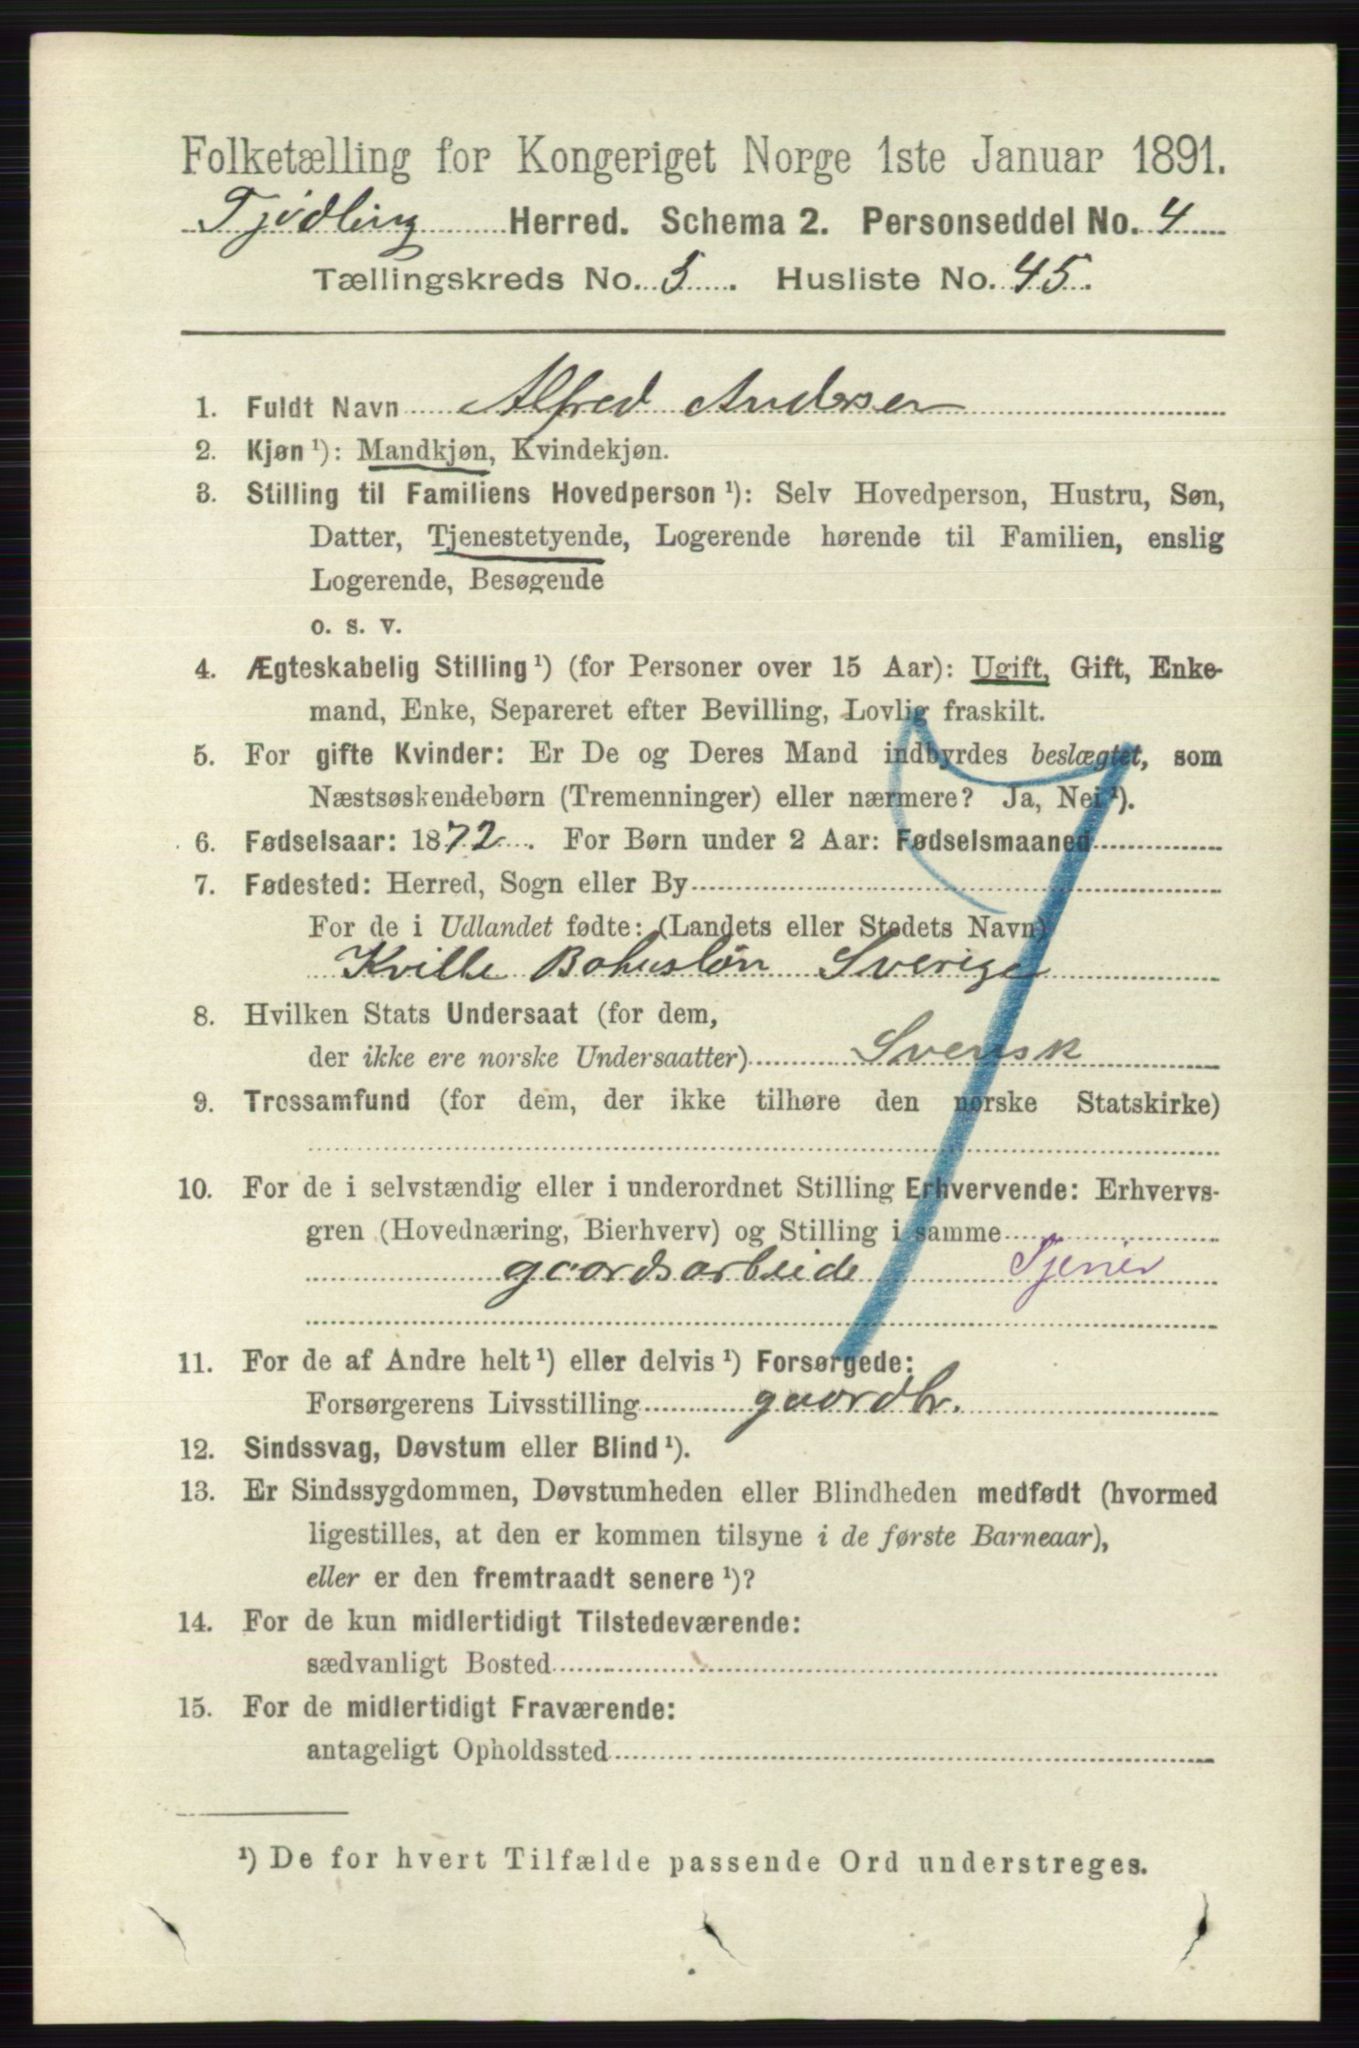 Folketælling for Kongeriget Norge 1ste Januar 1891.
Tjødling Herred. Schema 2. Personseddel No. 4
Tællingskreds No. 5. Husliste No. 45.
1. Fuldt Navn Alfred Andersen
2. Kjøn ¹): Mandkjøn, Kvindekjøn.
3. Stilling til Familiens Hovedperson ¹): Selv Hovedperson, Hustru, Søn,
Datter, Tjenestetyende, Logerende hørende til Familien, enslig
Logerende, Besøgende
o. s. v.
4. Ægteskabelig Stilling ¹) (for Personer over 15 Aar): Ugift, Gift, Enke-
mand, Enke, Separeret efter Bevilling, Lovlig fraskilt.
5. For gifte Kvinder: Er De og Deres Mand indbyrdes beslægtet, som
Næstsøskendebørn (Tremenninger) eller nærmere? Ja, Nei ¹).
6. Fødselsaar: 1872. For Børn under 2 Aar: Fødselsmaaned
7. Fødested: Herred, Sogn eller By
For de i Udlandet fødte: (Landets eller Stedets Navn)
Kville Bohuslön Sverige
8. Hvilken Stats Undersaat (for dem,
der ikke ere norske Undersaatter) Svensk
9. Trossamfund (for dem, der ikke tilhøre den norske Statskirke)
10. For de i selvstændig eller i underordnet Stilling Erhvervende: Erhvervs-
gren (Hovednæring, Bierhverv) og Stilling i samme
gaardsarbeide Tjener
11. For de af Andre helt ¹) eller delvis ¹) Forsørgede:
Forsørgerens Livsstilling gaardbr.
12. Sindssvag, Døvstum eller Blind ¹).
13. Er Sindssygdommen, Døvstumheden eller Blindheden medfødt (hvormed
ligestilles, at den er kommen tilsyne i de første Barneaar),
eller er den fremtraadt senere ¹)?
14. For de kun midlertidigt Tilstedeværende:
sædvanligt Bosted
15. For de midlertidigt Fraværende:
antageligt Opholdssted
¹) De for hvert Tilfælde passende Ord understreges.